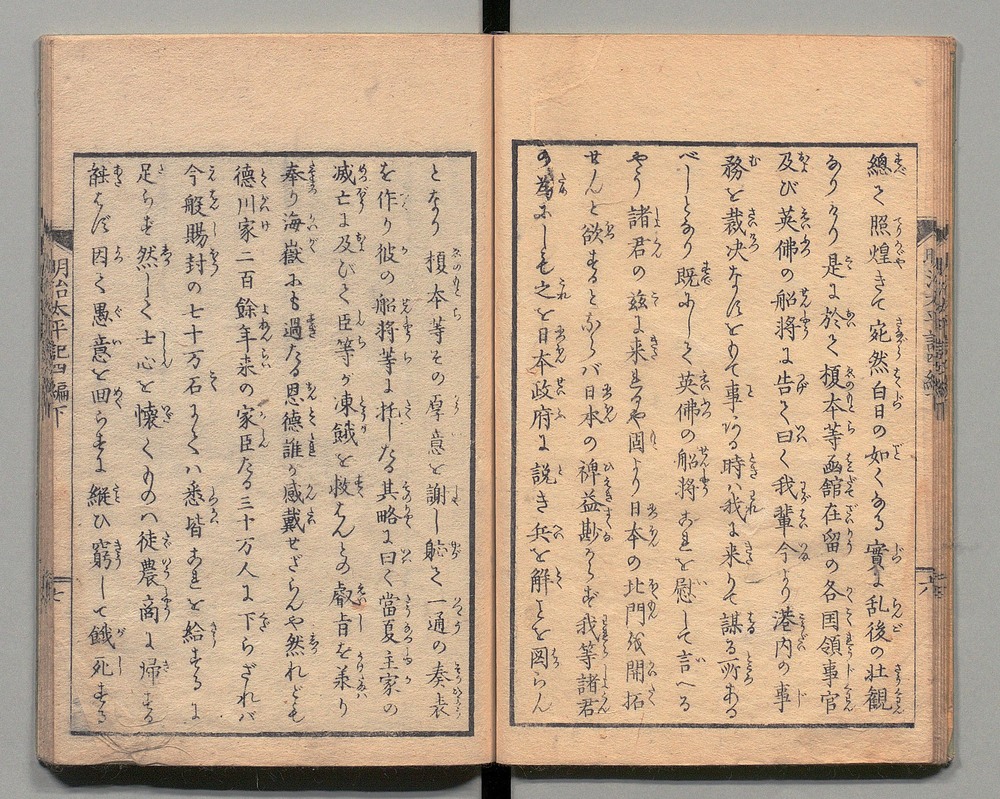 總て照煌きて宛然白日の如くある實に乱後の壮観
ありけり是に於て榎本等函館在留の各国領事官
及び英佛の船将に告て曰く我輩今より港内の事
務を裁决なすをもて事ある時ハ我に来りて謀る所ある
べしとなり既にして英佛の船将これを慰して言へる
やう諸君の茲に来るや固より日本の北門を開拓
せんと欲するとならバ日本の裨益尠からず我等諸君
の為にしも之を日本政府に説き兵を解ことを図らん
となり榎本等その厚意を謝し躬て一通の奏表
を作り彼の船将等に托したる其略に曰く當夏主家の
滅亡に及びて臣等が凍餓を救はんとの叡旨を蒙り
奉り海嶽にも過たる恩德誰か感戴せざらんや然れども
德川家二百餘年来の家臣たる三十万人に下らざれバ
今般賜封の七十万石にてハ悉皆これを給するに
足らず然して士心を懐くものハ徒農商に帰する
能はず因て愚意を回らすに縦ひ窮して餓死する
明治太平記四編下
七
六